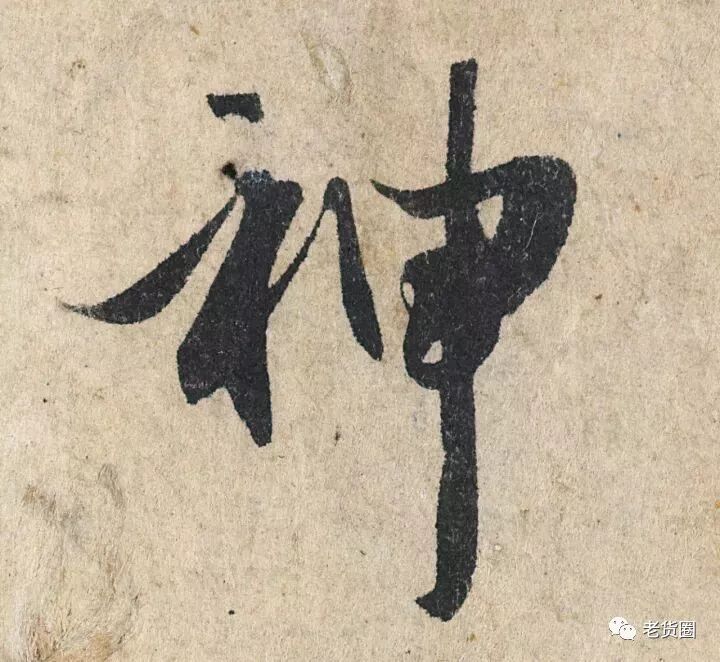 神
老货圈